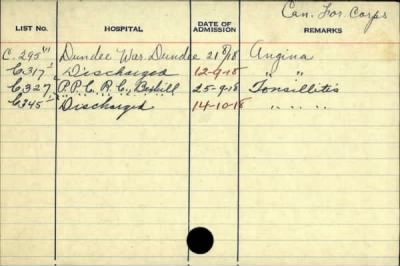 Can. For. Corps
LIST No. HOSPITAL DATE OF ADMISSION REMARKS
C. 295 Dundee War. Dundee 21 8/18 Angina
C. 317 Discharged 12-9-18 " "
C. 327 P.P.C.R.C., Bexhill 25-9-18 Tonsillitis
C. 345 Discharged 14-10-18 " " "